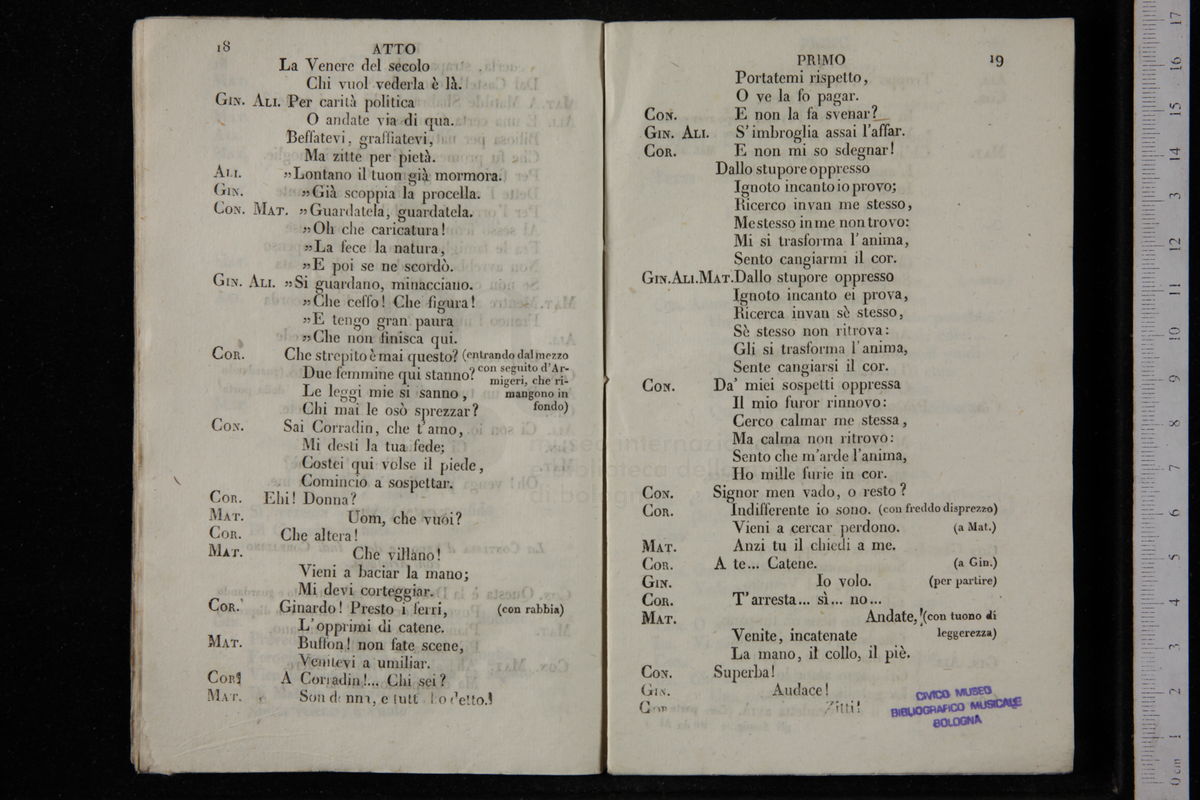 18 ATTO
La Venere del secolo
Chi vuol vederla è là.
GIN. ALI. Per carità politica
O andate via di qua.
Beffatevi, graffiatevi,
Ma zitte per pietà.
ALI. »Lontano il tuon già mormora.
GIN. »Già scoppia la procella.
CON. MAT. »Guardatela, guardatela.
»Oh che caricatura!
»La fece la natura,
»E poi se ne scordò.
GIN. ALI. »Si guardano, minacciano.
»Che ceffo! Che figura!
»E tengo gran paura
»Che non finisca qui.
COR. Che strepito è mai questo? (entrando dal mezzo
Due femmine qui stanno? con seguito d'Ar-
migeri, che ri-
Le leggi mie si sanno, mangono in
Chi mai le osò sprezzar? fondo)
CON. Sai Corradin, che t'amo,
Mi desti la tua fede;
Costei qui volse il piede,
Comincio a sospettar.
COR. Ehi! Donna?
MAT. Uom, che vuoi?
COR. Che altera!
MAT. Che villano!
Vieni a baciar la mano;
Mi devi corteggiar.
COR. Ginardo! Presto i ferri, (con rabbia)
L'opprimi di catene.
MAT. Buffon! non fate scene,
Venitevi a umiliar.
COR. A Corradin!... Chi sei?
MAT. Son donna, e tutt ho detto.
PRIMO 19
Portatemi rispetto,
O ve la fo pagar.
CON. E non la fa svenar?
GIN. ALI. S'imbroglia assai l'affar.
COR. E non mi so sdegnar!
Dallo stupore oppresso
Ignoto incanto io provo;
Ricerco invan me stesso,
Me stesso in me non trovo:
Mi si trasforma l'anima,
Sento cangiarmi il cor.
GIN. ALI. MAT. Dallo stupore oppresso
Ignoto incanto ei prova,
Ricerca invan sè stesso,
Sè stesso non ritrova:
Gli si trasforma l'anima,
Sente cangiarsi il cor.
CON. Da' miei sospetti oppressa
Il mio furor rinnovo:
Cerco calmar me stessa,
Ma calma non ritrovo:
Sento che m'arde l'anima,
Ho mille furie in cor.
CON. Signor men vado, o resto?
COR. Indifferente io sono. (con freddo disprezzo)
Vieni a cercar perdono. (a Mat.)
MAT. Anzi tu il chiedi a me.
COR. A te... Catene. (a Gin.)
GIN. Io volo. (per partire)
COR. T'arresta... sì... no...
MAT. Andate, (con tuono di
Venite, incatenate leggerezza)
La mano, il collo, il piè.
CON. Superba!
GIN. Audace!
COR Zitti!
CIVICO MUSEO
BIBLIOGRAFICO MUSICALE
BOLOGNA